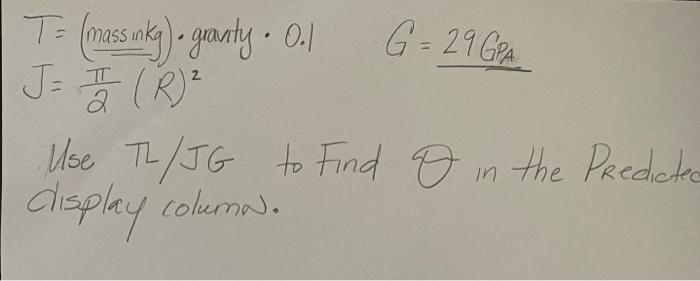 T = (mass in kg) · gravity · 0.1 G = 29 GPA
J = π/2 (R)²
Use TL/JG to Find θ in the Predicted
display column.